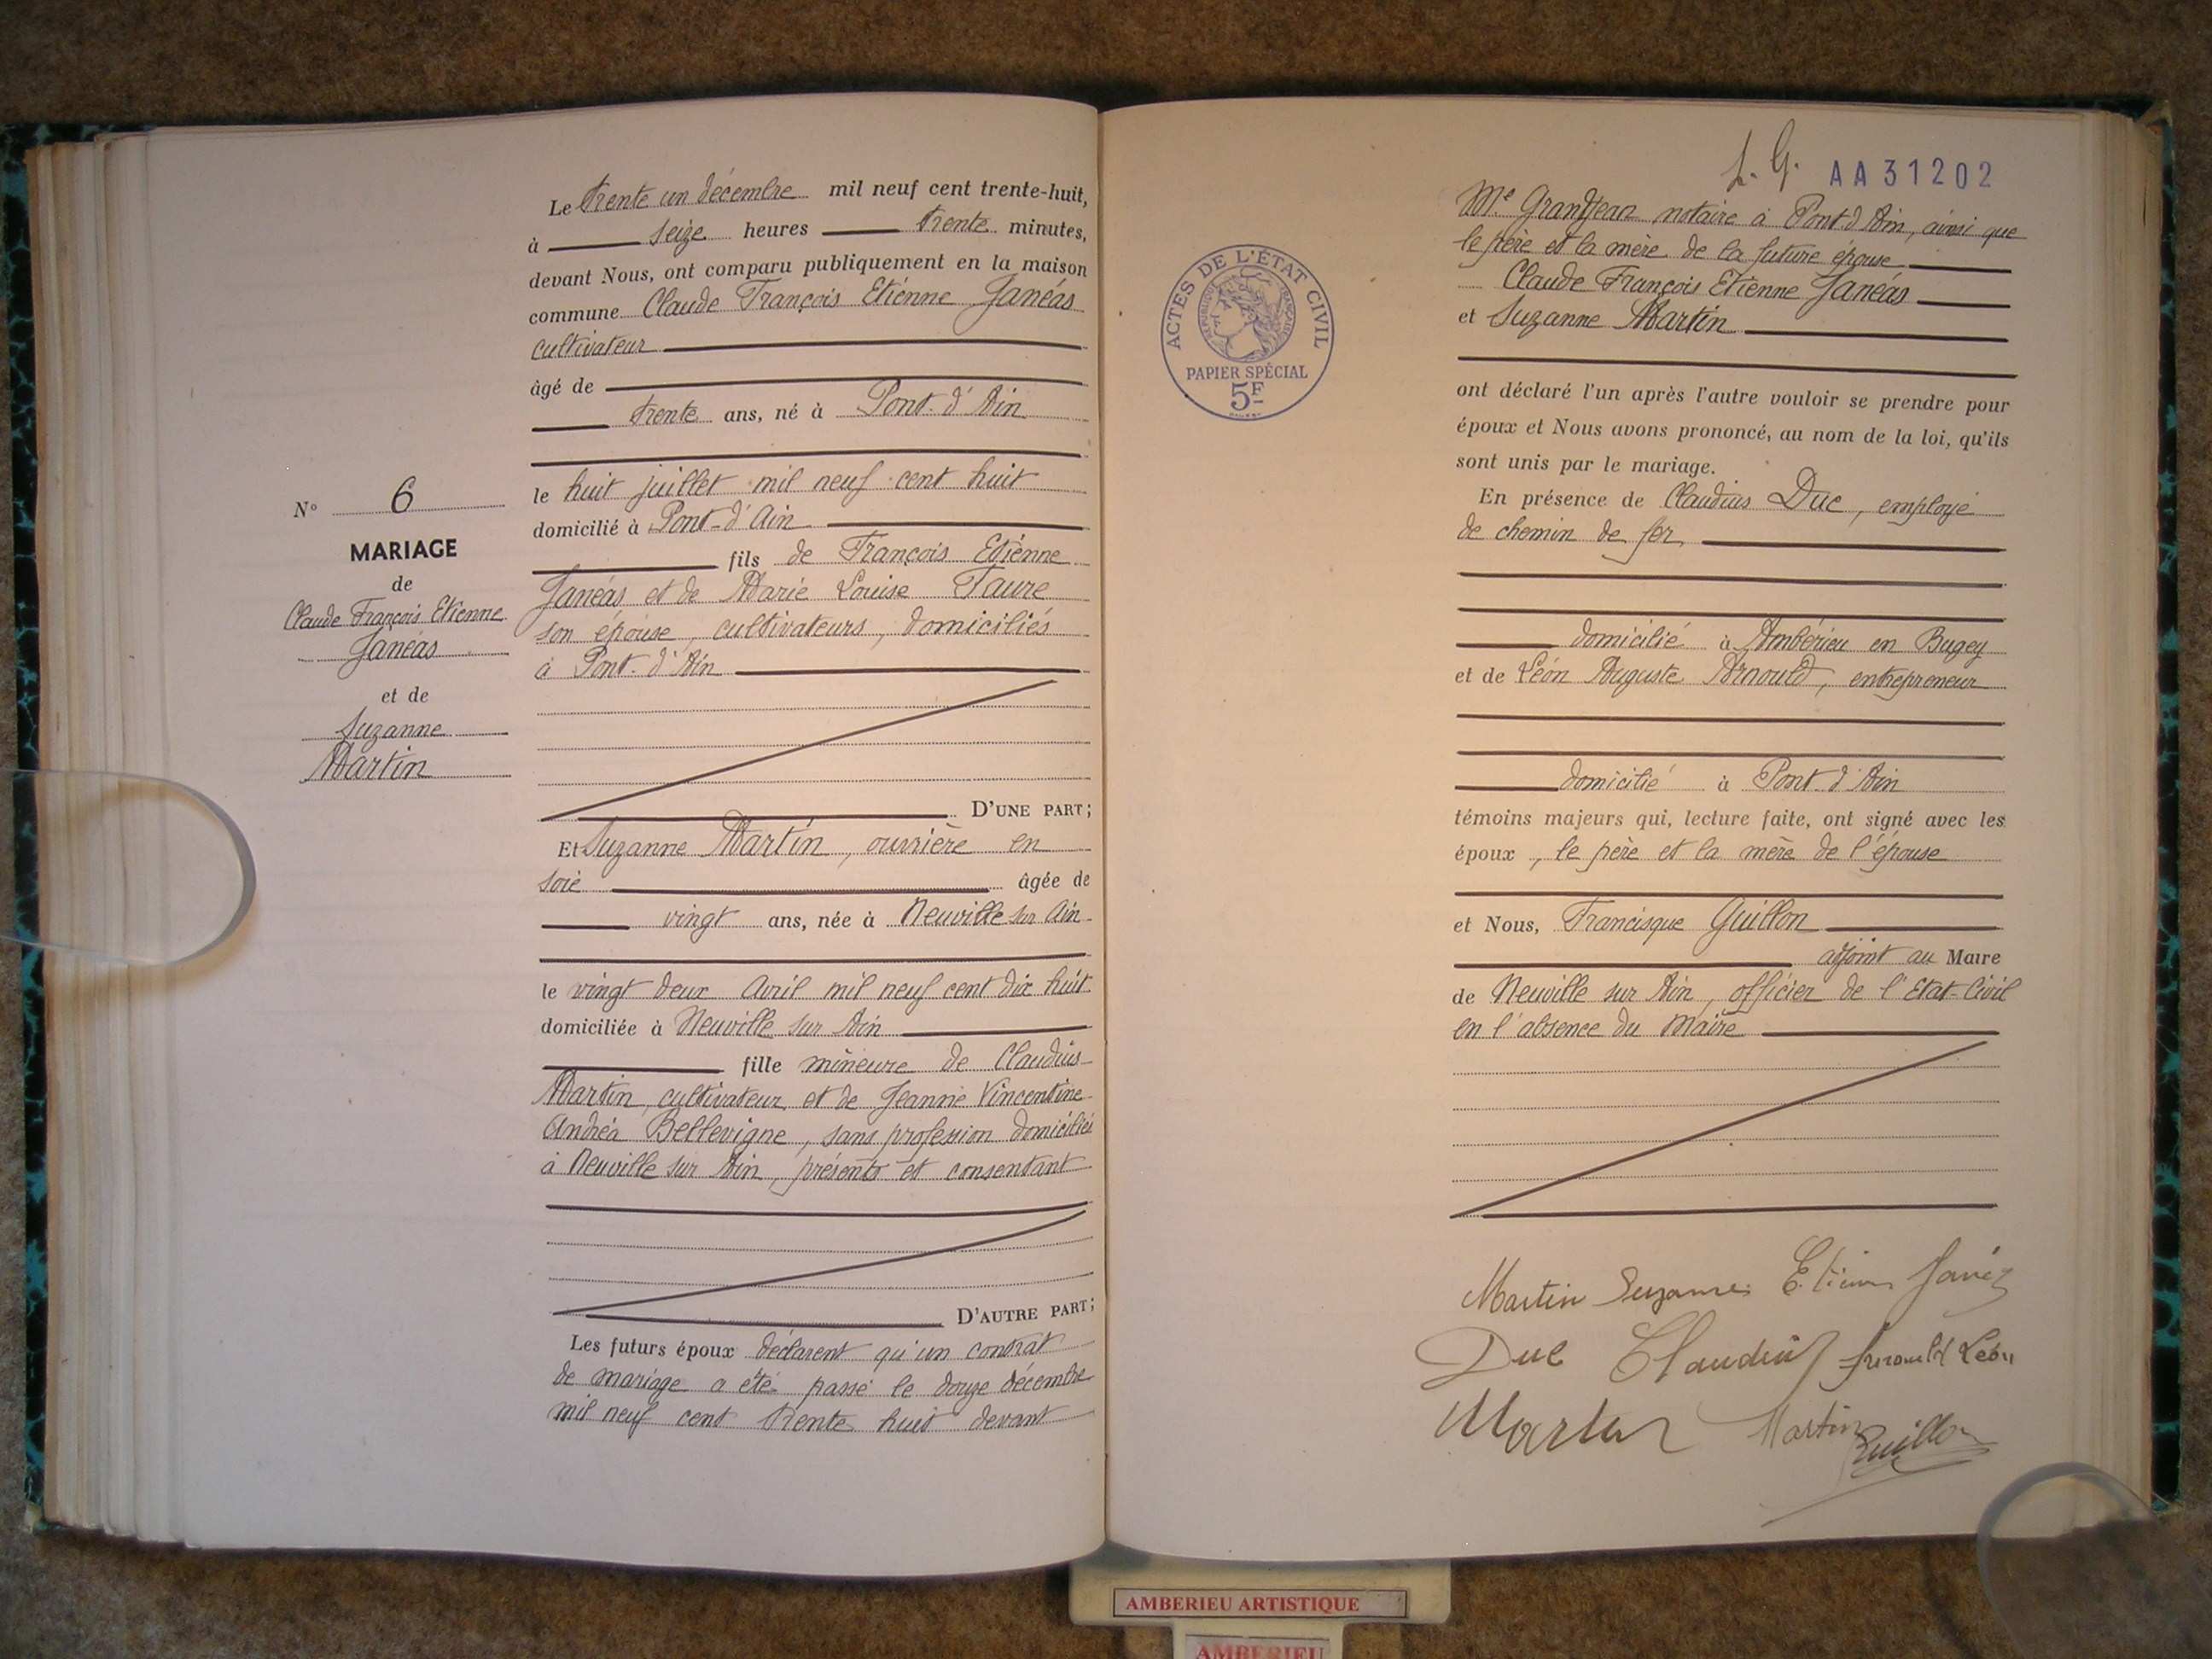 Le trente un décembre mil neuf cent trente-huit,
à seize heures trente minutes,
devant Nous, ont comparu publiquement en la maison
commune Claude François Etienne Janéas
cultivateur
âgé de
trente ans, né à Pont-d'Ain
le huit juillet mil neuf cent huit
domicilié à Pont-d'Ain
fils de François Etienne
Janéas et de Marie Louise Faure
son épouse, cultivateurs, domiciliés
à Pont-d'Ain
D'UNE PART;
N° 6
MARIAGE
de
Claude François Etienne
Janéas
et de
Suzanne
Martin
Et Suzanne Martin, ouvrière en
soie âgée de
vingt ans, née à Neuville sur Ain
le vingt deux Avril mil neuf cent dix huit
domiciliée à Neuville sur Ain
fille mineure de Claudius
Martin, cultivateur et de Jeanne Vincentine
Andréa Bellevigne, sans profession domiciliés
à Neuville sur Ain, présents et consentant
D'AUTRE PART;
Les futurs époux déclarent qu'un contrat
de mariage a été passé le douze décembre
mil neuf cent trente huit devant
L. G. AA31202
Me Grandjean notaire à Pont-d'Ain, ainsi que
le père et la mère de la future épouse
Claude François Etienne Janéas
et Suzanne Martin
ACTES DE L'ÉTAT CIVIL
RÉPUBLIQUE FRANÇAISE
PAPIER SPÉCIAL
5F
ont déclaré l'un après l'autre vouloir se prendre pour
époux et Nous avons prononcé, au nom de la loi, qu'ils
sont unis par le mariage.
En présence de Claudius Duc, employé
de chemin de fer,
domicilié à Ambérieu en Bugey
et de Léon Auguste Arnould, entrepreneur
domicilié à Pont-d'Ain
témoins majeurs qui, lecture faite, ont signé avec les
époux, le père et la mère de l'épouse
et Nous, Francisque Guillon
adjoint au Maire
de Neuville sur Ain, officier de l'Etat-Civil
en l'absence du Maire
Martin Suzanne Etienne Janéas
Duc Claudius Arnould Léon
Martin Martin
Guillon
AMBERIEU ARTISTIQUE
AMBERIEU